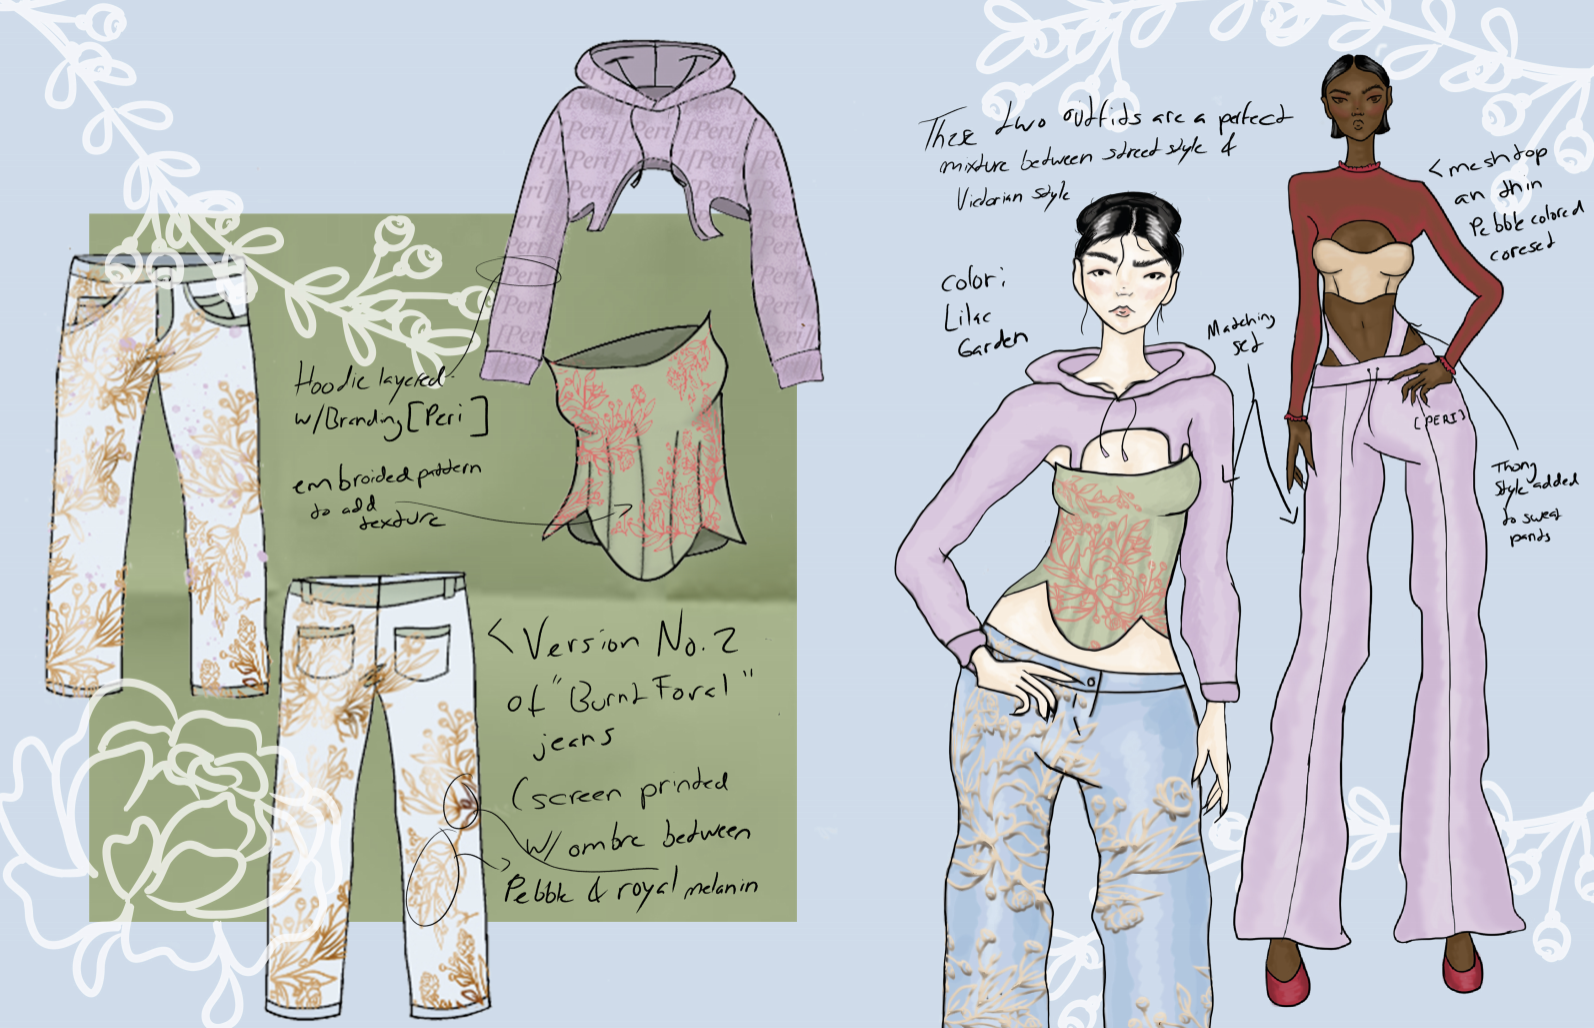 [Peri] [Peri] [Peri]
Hoodie layered
w/Branding [Peri]
embroided pattern
to add
texture
< Version No. 2
of "Burnt Foral"
jeans
(screen printed
w/ ombre between
Pebble & royal melanin
These two outfits are a perfect
mixture between street style &
Victorian style
color:
Lilac
Garden
Matching
set
< mesh top
an thin
Pebble colored
coreset
[PERI]
Thong
style added
to sweat
pants